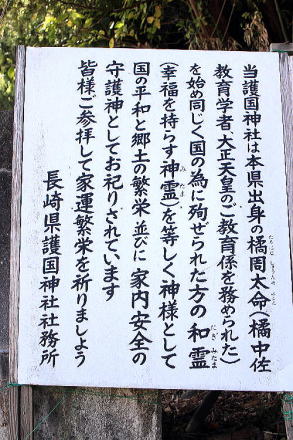 当護国神社は本県出身の橘周太命（橘中佐
教育学者、大正天皇のご教育係を務められた）
を始め同じく国の為に殉ぜられた方の和霊
（幸福を持らす神霊）を等しく神様として
国の平和と郷土の繁栄並びに家内安全の
守護神としてお祀りされています
皆様ご参拝して家運繁栄を祈りましょう
長崎県護国神社社務所